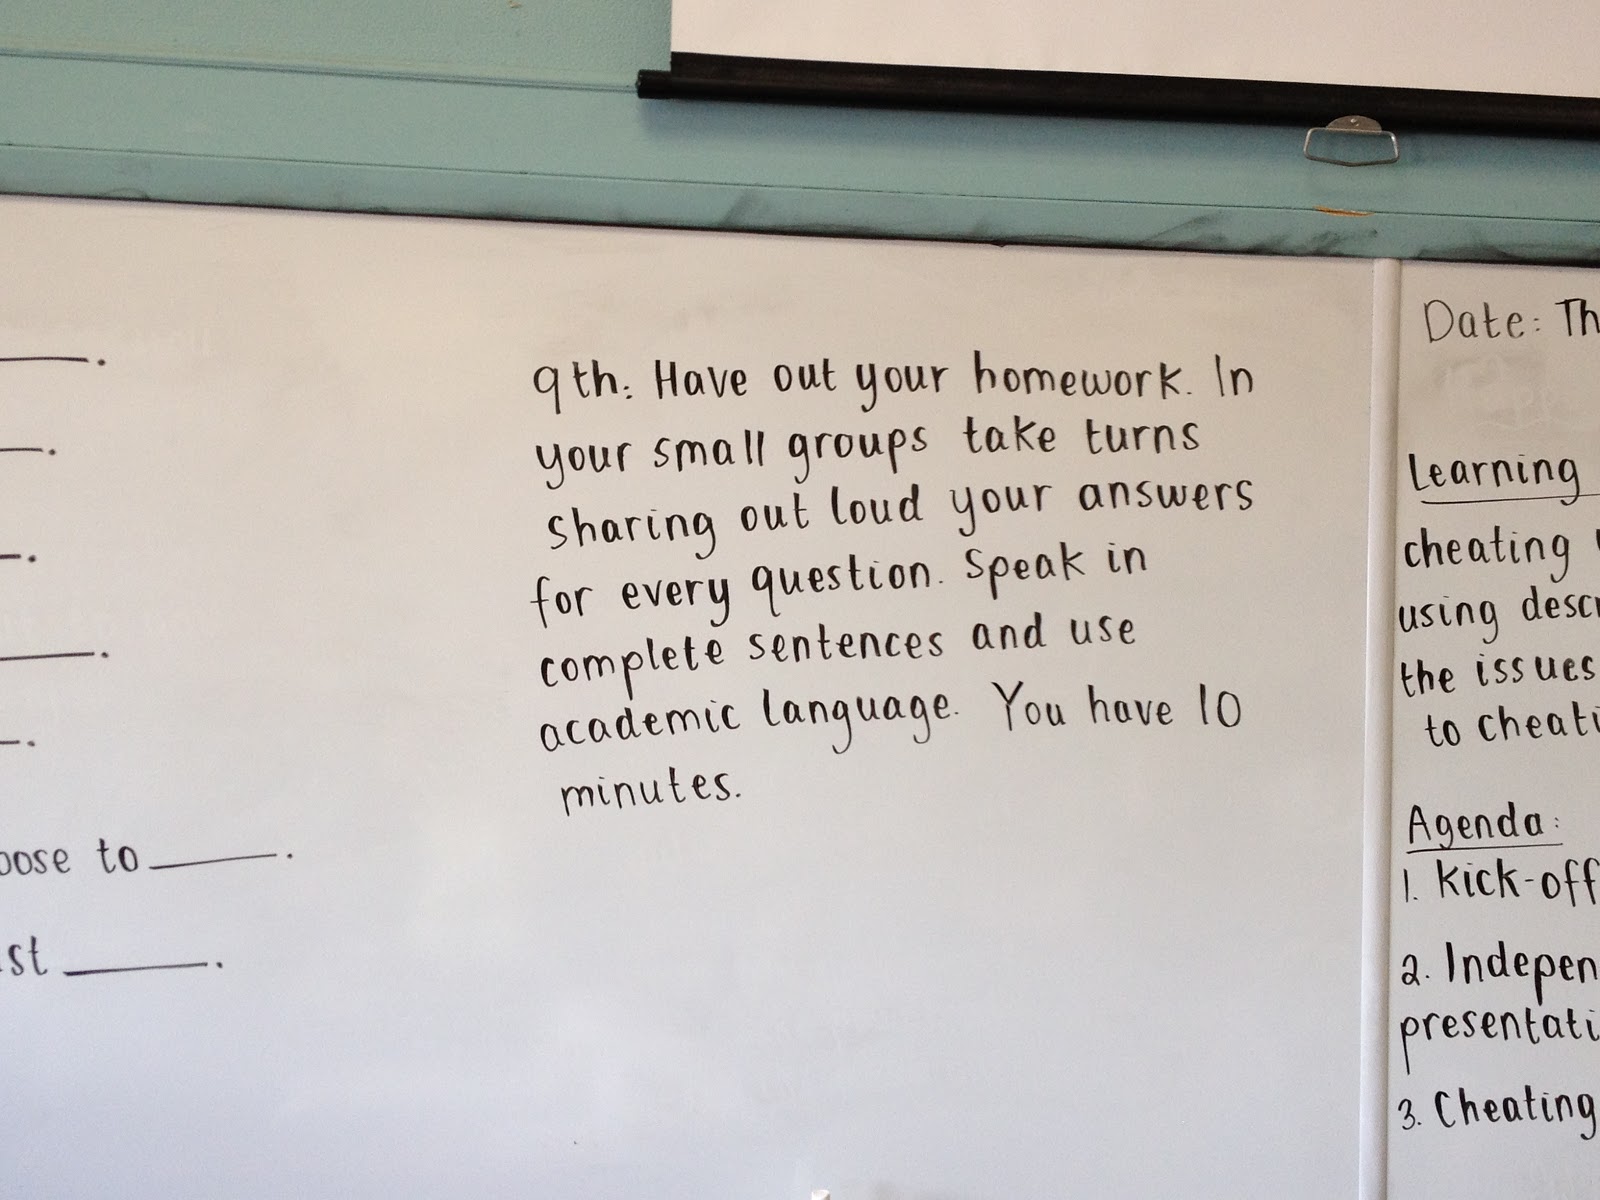 oose to ______.
st ______.
9th: Have out your homework. In
your small groups take turns
sharing out loud your answers
for every question. Speak in
complete sentences and use
academic language. You have 10
minutes.
Date: Th
Learning
cheating
using desc
the issues
to cheati
Agenda:
1. Kick-off
2. Indepen
presentati
3. Cheating